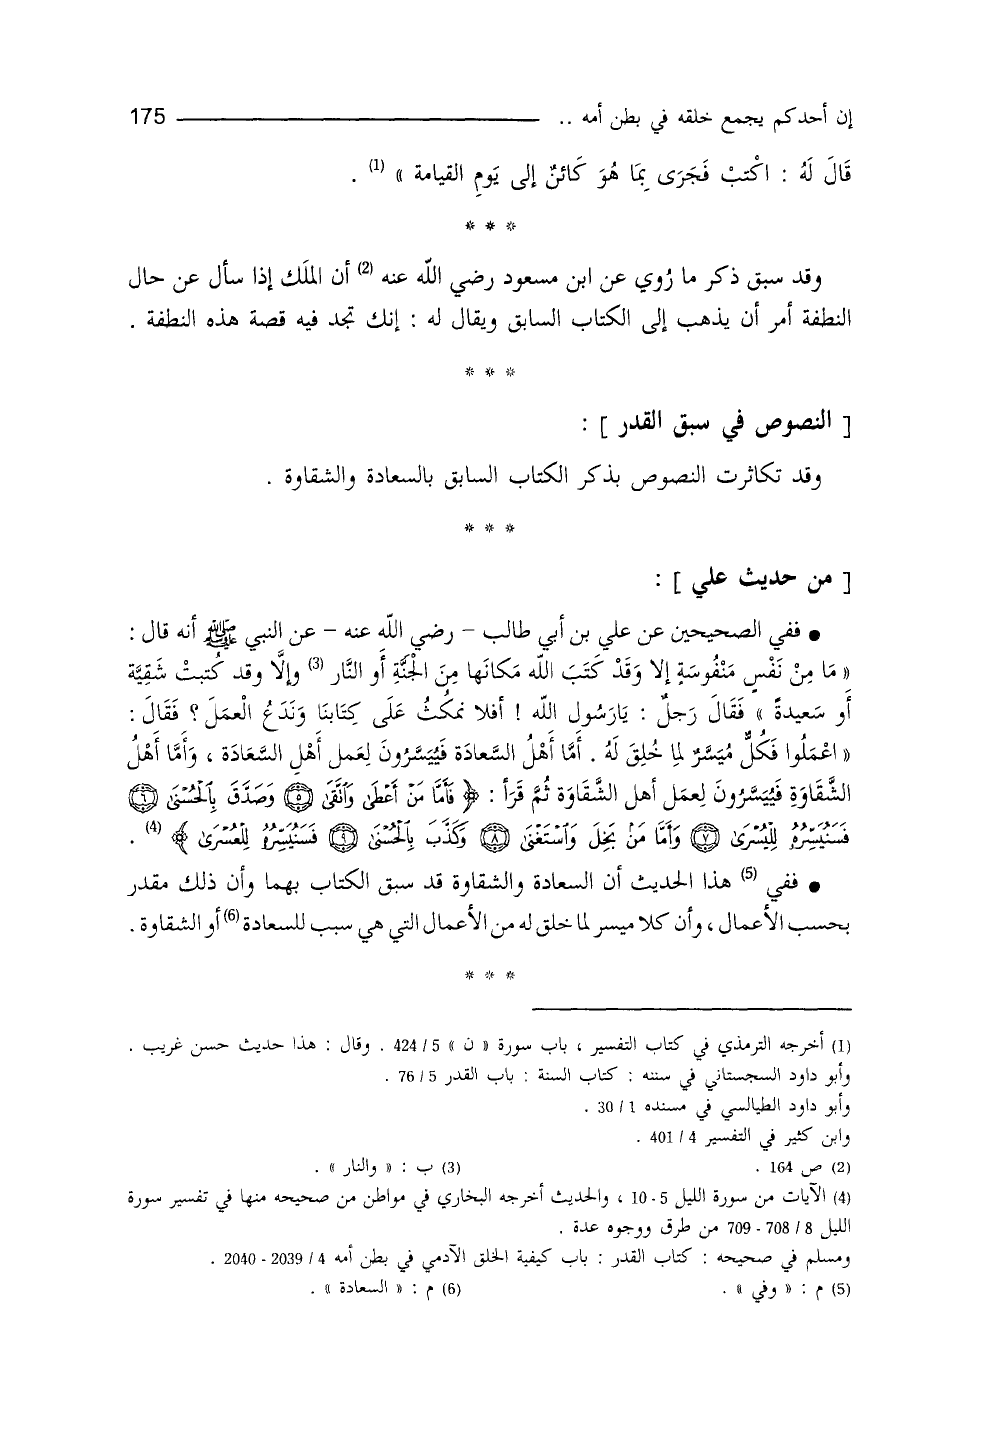 إن أحدكم يجمع خلقه في بطن أمه .. 175
قَالَ لَهُ : اكْتبْ فَجَرَى بِمَا هُوَ كَائنٌ إلى يَومِ القيامة » (1) .
* * *
وقد سبق ذكر ما رُوي عن ابن مسعود رضي اللّه عنه (2) أن الملَك إذا سأل عن حال
النطفة أمر أن يذهب إلى الكتاب السابق ويقال له : إنك تجد فيه قصة هذه النطفة .
* * *
[ النصوص في سبق القدر ] :
وقد تكاثرت النصوص بذكر الكتاب السابق بالسعادة والشقاوة .
* * *
[ من حديث علي ] :
● ففي الصحيحين عن علي بن أبي طالب – رضي اللّه عنه – عن النبي ﷺ أنه قال :
« مَا مِنْ نَفْسٍ مَنْفُوسَةٍ إلا وَقَدْ كَتَبَ اللّه مَكانَها مِنَ الْجَنَّةِ أَو النَّار (3) وإلَّا وقد كُتبتْ شَقِيَّة
أَو سَعيدةً » فَقَالَ رَجلٌ : يَارَسُول اللّه ! أفلا نمكُثُ عَلَى كِتَابنَا وَنَدَعُ الْعمَلَ ؟ فَقَالَ :
« اعْمَلُوا فَكُلٌّ مُيَسَّرٌ لِمَا خُلِقَ لَهُ . أَمَّا أَهْلُ السَّعادَة فَيُيَسَّرُونَ لِعَمل أَهْلِ السَّعَادَة ، وَأَمَّا أَهْلُ
الشَّقَاوَةِ فَيُيَسَّرُونَ لِعمَل أهل الشَّقاوَة ثُمَّ قَرَأَ : ﴿ فَأَمَّا مَنْ أَعْطَىٰ وَٱتَّقَىٰ ۝٥ وَصَدَّقَ بِٱلْحُسْنَىٰ ۝٦
فَسَنُيَسِّرُهُۥ لِلْيُسْرَىٰ ۝٧ وَأَمَّا مَنۢ بَخِلَ وَٱسْتَغْنَىٰ ۝٨ وَكَذَّبَ بِٱلْحُسْنَىٰ ۝٩ فَسَنُيَسِّرُهُۥ لِلْعُسْرَىٰ ﴾ (4) .
● ففي (5) هذا الحديث أن السعادة والشقاوة قد سبق الكتاب بهما وأن ذلك مقدر
بحسب الأعمال ، وأن كلا ميسر لما خلق له من الأعمال التي هي سبب للسعادة (6) أو الشقاوة .
* * *
(1) أخرجه الترمذي في كتاب التفسير ، باب سورة « ن » 5 / 424 . وقال : هذا حديث حسن غريب .
وأبو داود السجستاني في سننه : كتاب السنة : باب القدر 5 / 76 .
وأبو داود الطيالسي في مسنده 1 / 30 .
وابن كثير في التفسير 4 / 401 .
(2) ص 164 . (3) ب : « والنار » .
(4) الآيات من سورة الليل 5 - 10 ، والحديث أخرجه البخاري في مواطن من صحيحه منها في تفسير سورة
الليل 8 / 708 - 709 من طرق ووجوه عدة .
ومسلم في صحيحه : كتاب القدر : باب كيفية الخلق الآدمي في بطن أمه 4 / 2039 - 2040 .
(5) م : « وفي » . (6) م : « السعادة » .